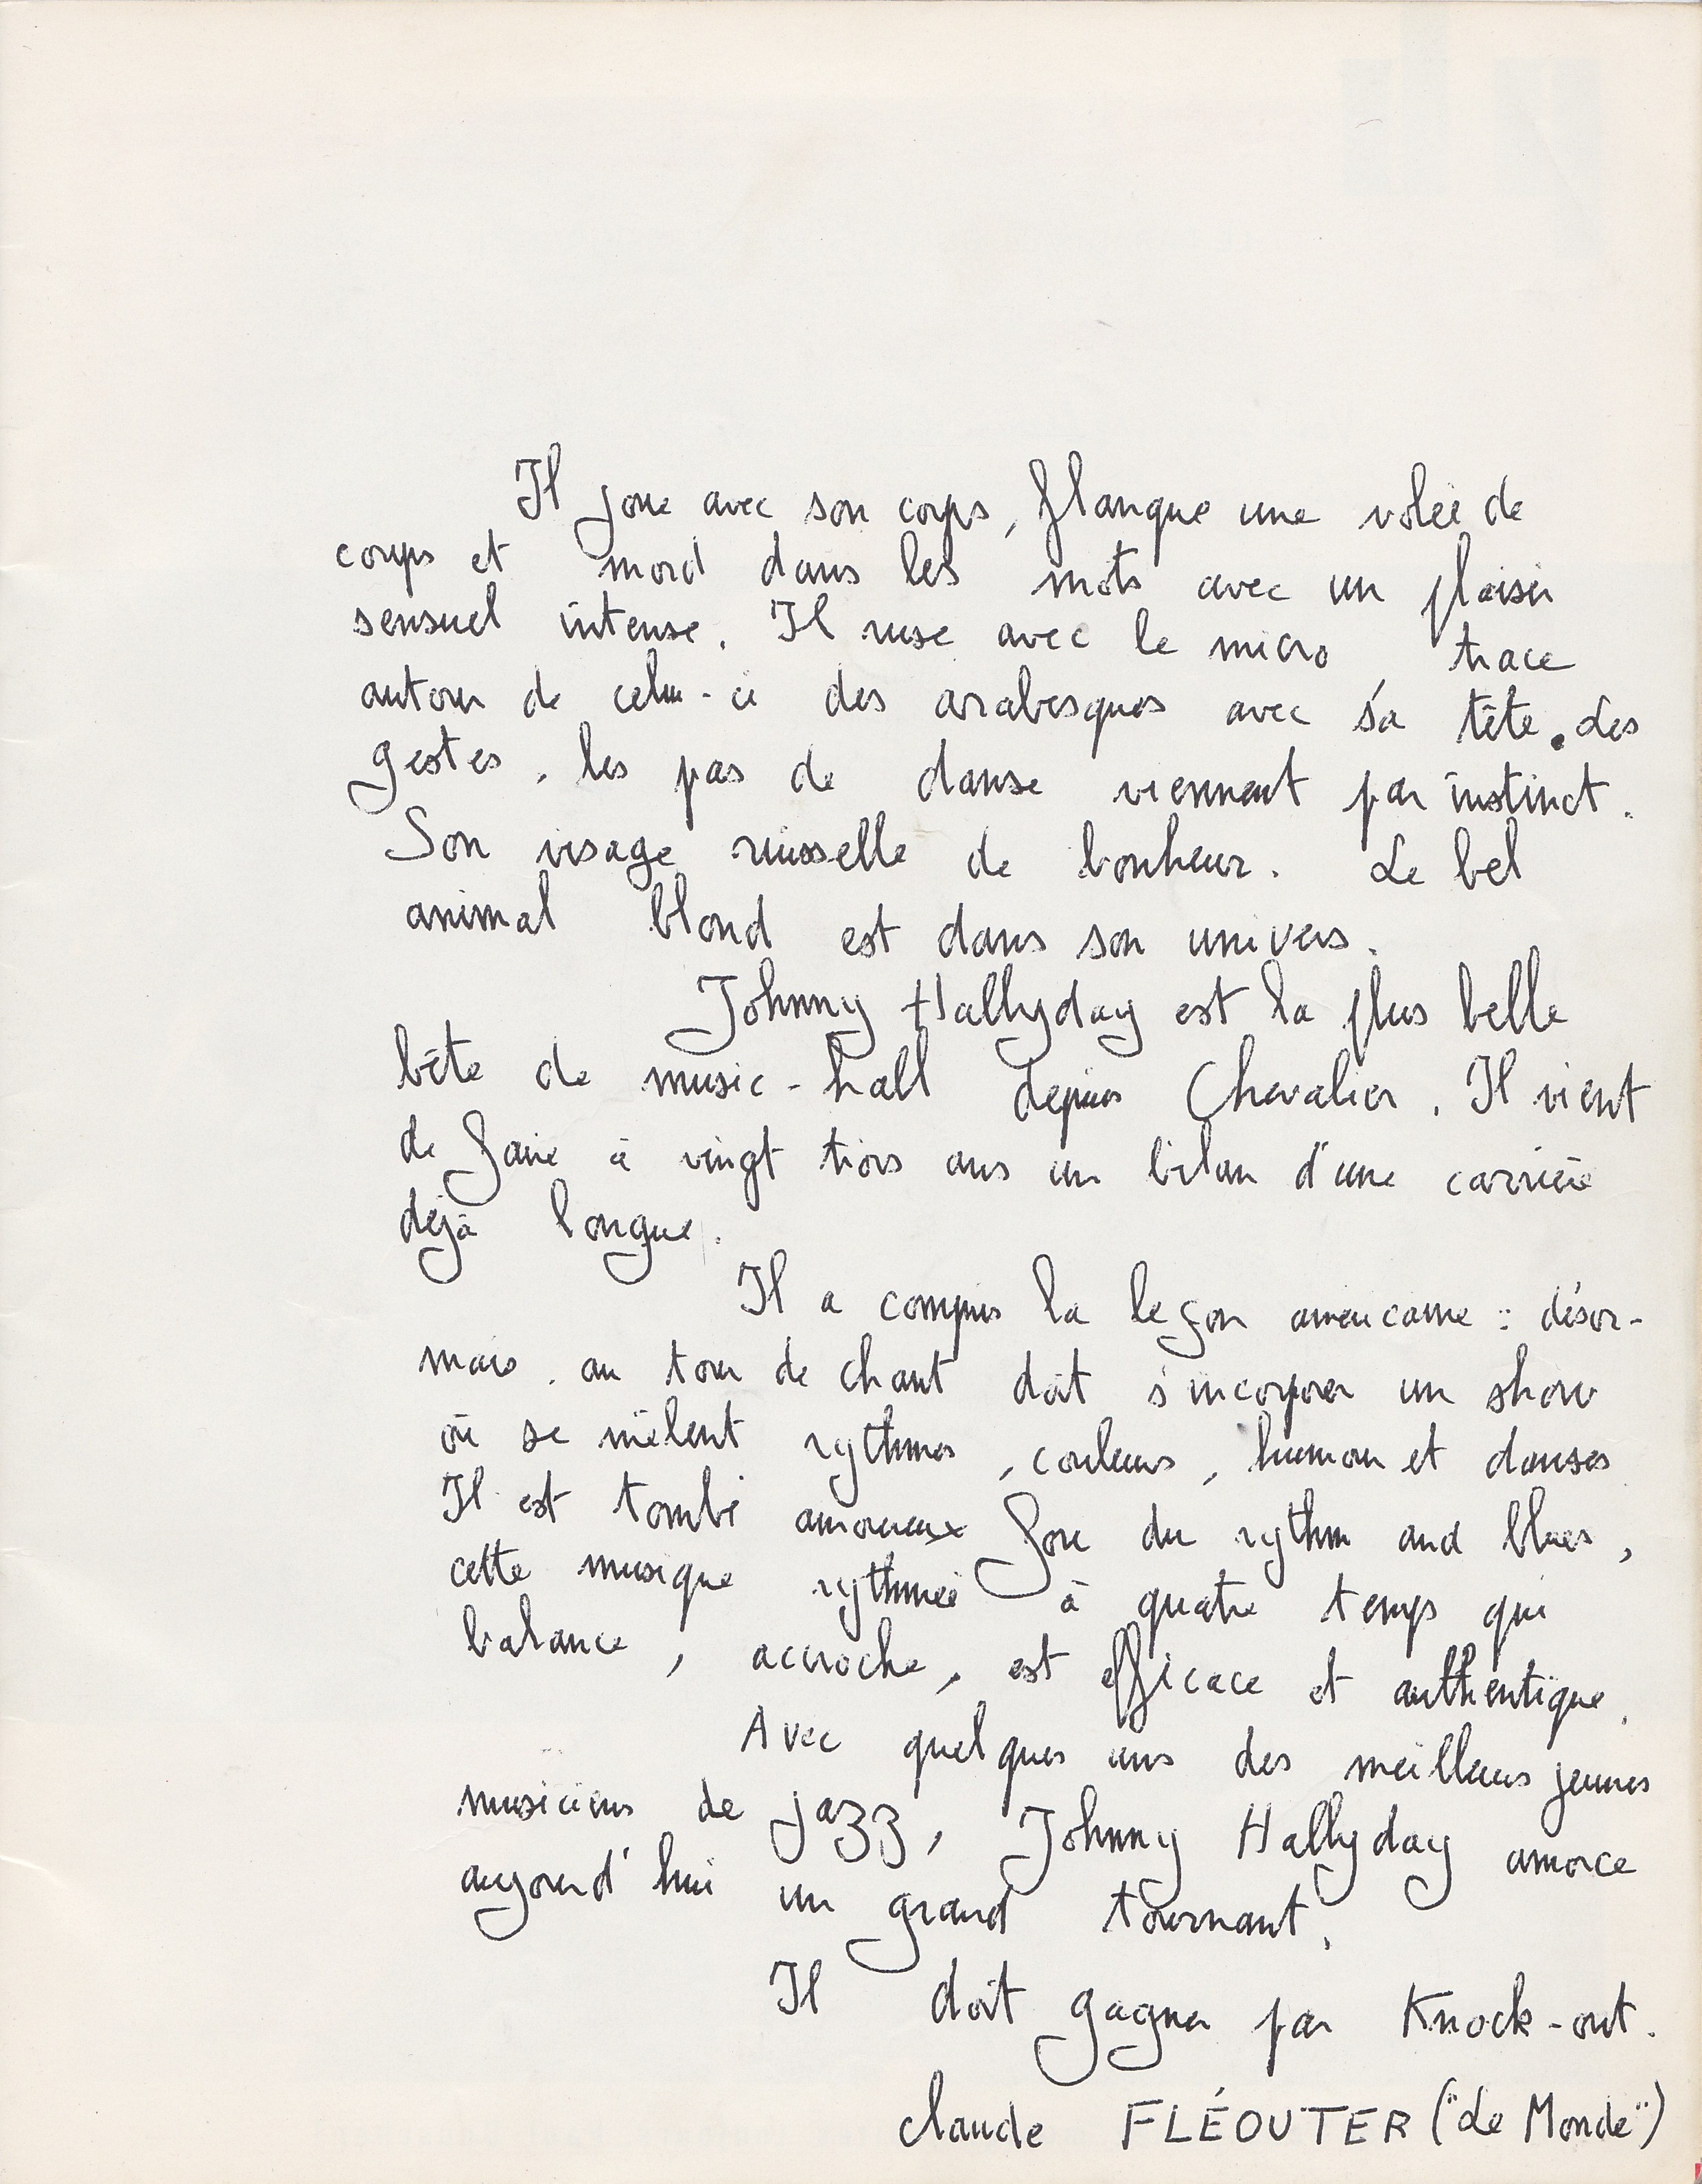 Il joue avec son corps, flanque une volée de
coups et mord dans les mots avec un plaisir
sensuel intense. Il ruse avec le micro, trace
autour de celui-ci des arabesques avec sa tête. Les
gestes, les pas de danse viennent par instinct.
Son visage ruisselle de bonheur. Le bel
animal blond est dans son univers.
Johnny Hallyday est la plus belle
bête de music-hall depuis Chevalier. Il vient
de faire à vingt trois ans un bilan d'une carrière
déjà longue.
Il a compris la leçon américaine : désor-
mais, au tour de chant doit s'incorporer un show
où se mêlent rythmes, couleurs, humour et danses
Il est tombé amoureux fou du rythm and blues,
cette musique rythmée à quatre temps qui
balance, accroche, est efficace et authentique.
Avec quelques uns des meilleurs jeunes
musiciens de jazz, Johnny Hallyday amorce
aujourd'hui un grand tournant.
Il doit gagner par Knock-out.
Claude FLÉOUTER ("Le Monde")